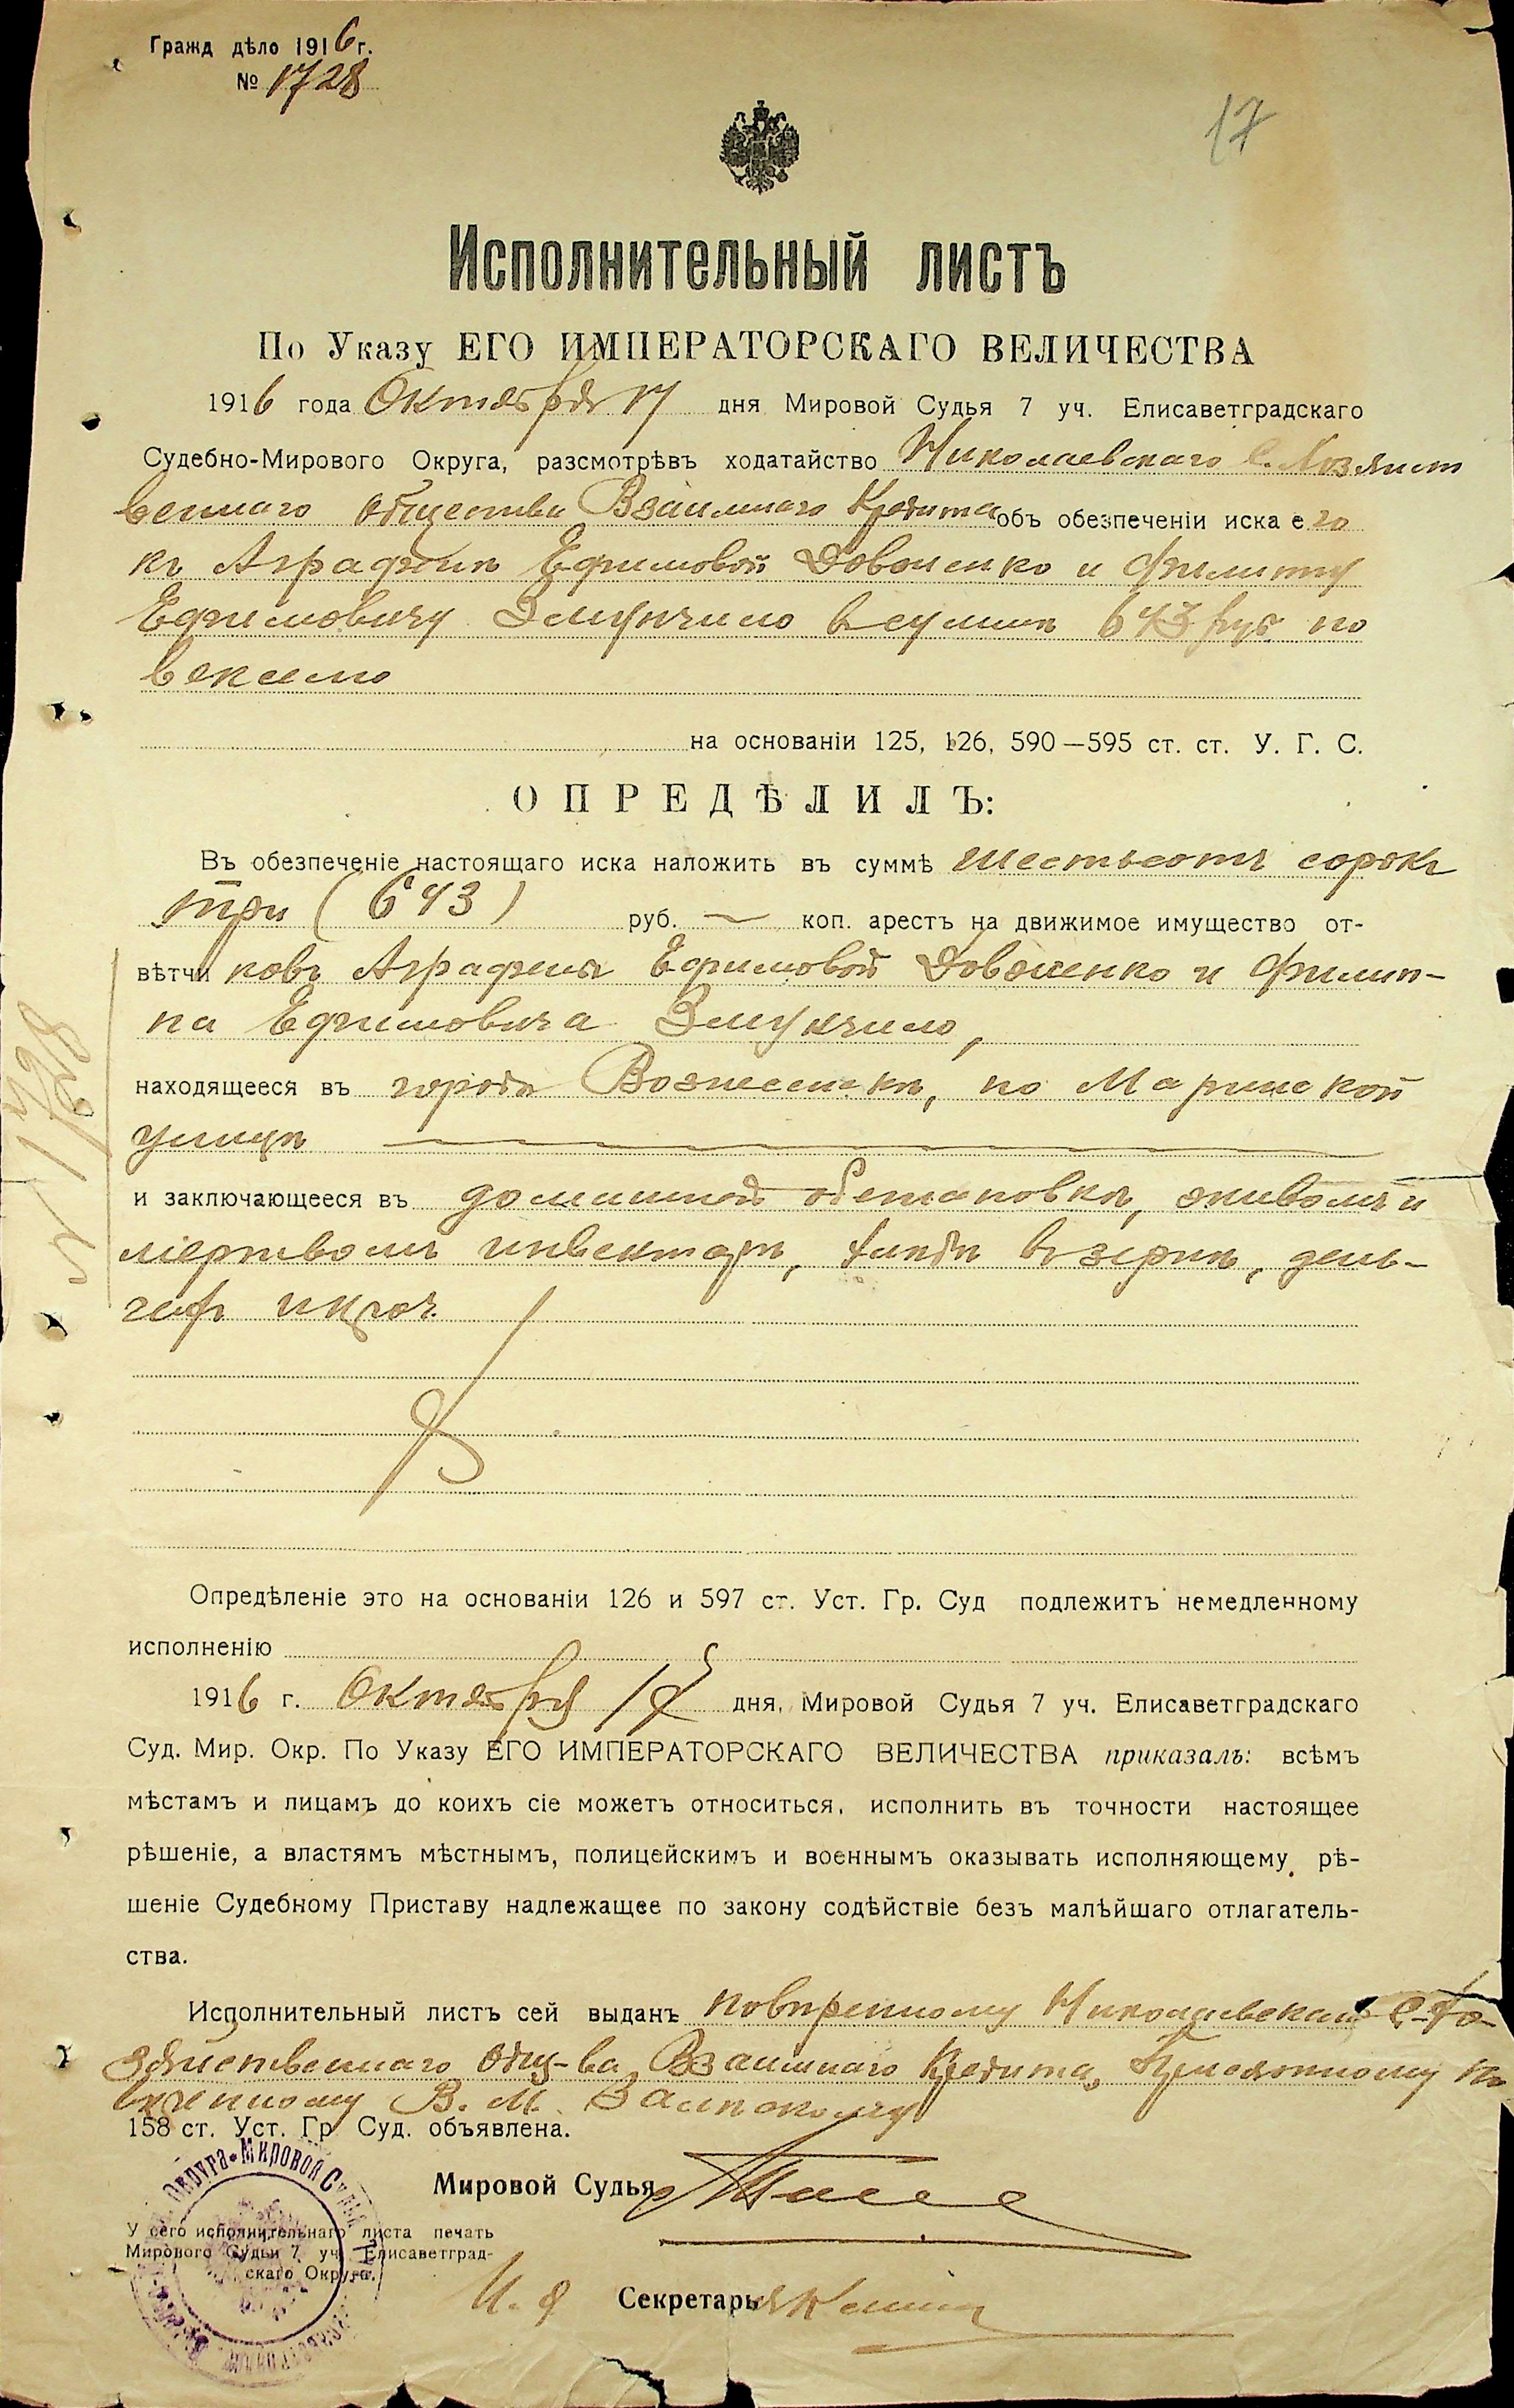 Гражд дѣло 1916 г.
№ 1728
17
Исполнительный листъ
По Указу ЕГО ИМПЕРАТОРСКАГО ВЕЛИЧЕСТВА
1916 года Октября 17 дня Мировой Судья 7 уч. Елисаветградскаго
Судебно-Мирового Округа, разсмотрѣвъ ходатайство Николаевскаго С. Хозяйст
веннаго общества Взаимнаго Кредита объ обезпеченіи иска его
къ Аграфѣнѣ Ефимовой Довоненко и Филиппу
Ефимовичу в суммѣ 643 руб по
векселю
на основаніи 125, 126, 590—595 ст. ст. У. Г. С.
ОПРЕДѢЛИЛЪ:
Въ обезпеченіе настоящаго иска наложить въ суммѣ шестьсотъ сорокъ
три (643) руб. — коп. арестъ на движимое имущество от-
вѣтчиковъ Аграфены Ефимовой Довоненко и Филип-
па Ефимовича
находящееся въ городѣ Вознесенскѣ, по Маринской
улицѣ
и заключающееся въ домашней обстановкѣ, живомъ и
мертвомъ инвентарѣ, хлѣбѣ въ зернѣ, день-
гахъ и проч.
№ 1728
Опредѣленіе это на основаніи 126 и 597 ст. Уст. Гр. Суд подлежитъ немедленному
исполненію
1916 г. Октября 17 дня, Мировой Судья 7 уч. Елисаветградскаго
Суд. Мир. Окр. По Указу ЕГО ИМПЕРАТОРСКАГО ВЕЛИЧЕСТВА приказалъ: всѣмъ
мѣстамъ и лицамъ до коихъ сіе можетъ относиться, исполнить въ точности настоящее
рѣшеніе, а властямъ мѣстнымъ, полицейскимъ и военнымъ оказывать исполняющему рѣ-
шеніе Судебному Приставу надлежащее по закону содѣйствіе безъ малѣйшаго отлагатель-
ства.
Исполнительный листъ сей выданъ повѣренному Николаевскаго С-Хо-
зяйственнаго Общ-ва Взаимнаго Кредита, Присяжному по
вѣренному В. М.
158 ст. Уст. Гр. Суд. объявлена.
Мировой Судья
У сего исполнительнаго листа печать
Мирового Судьи 7 уч. Елисаветград-
скаго Округа.
И. д. Секретарь
Округа * Мировой Судья